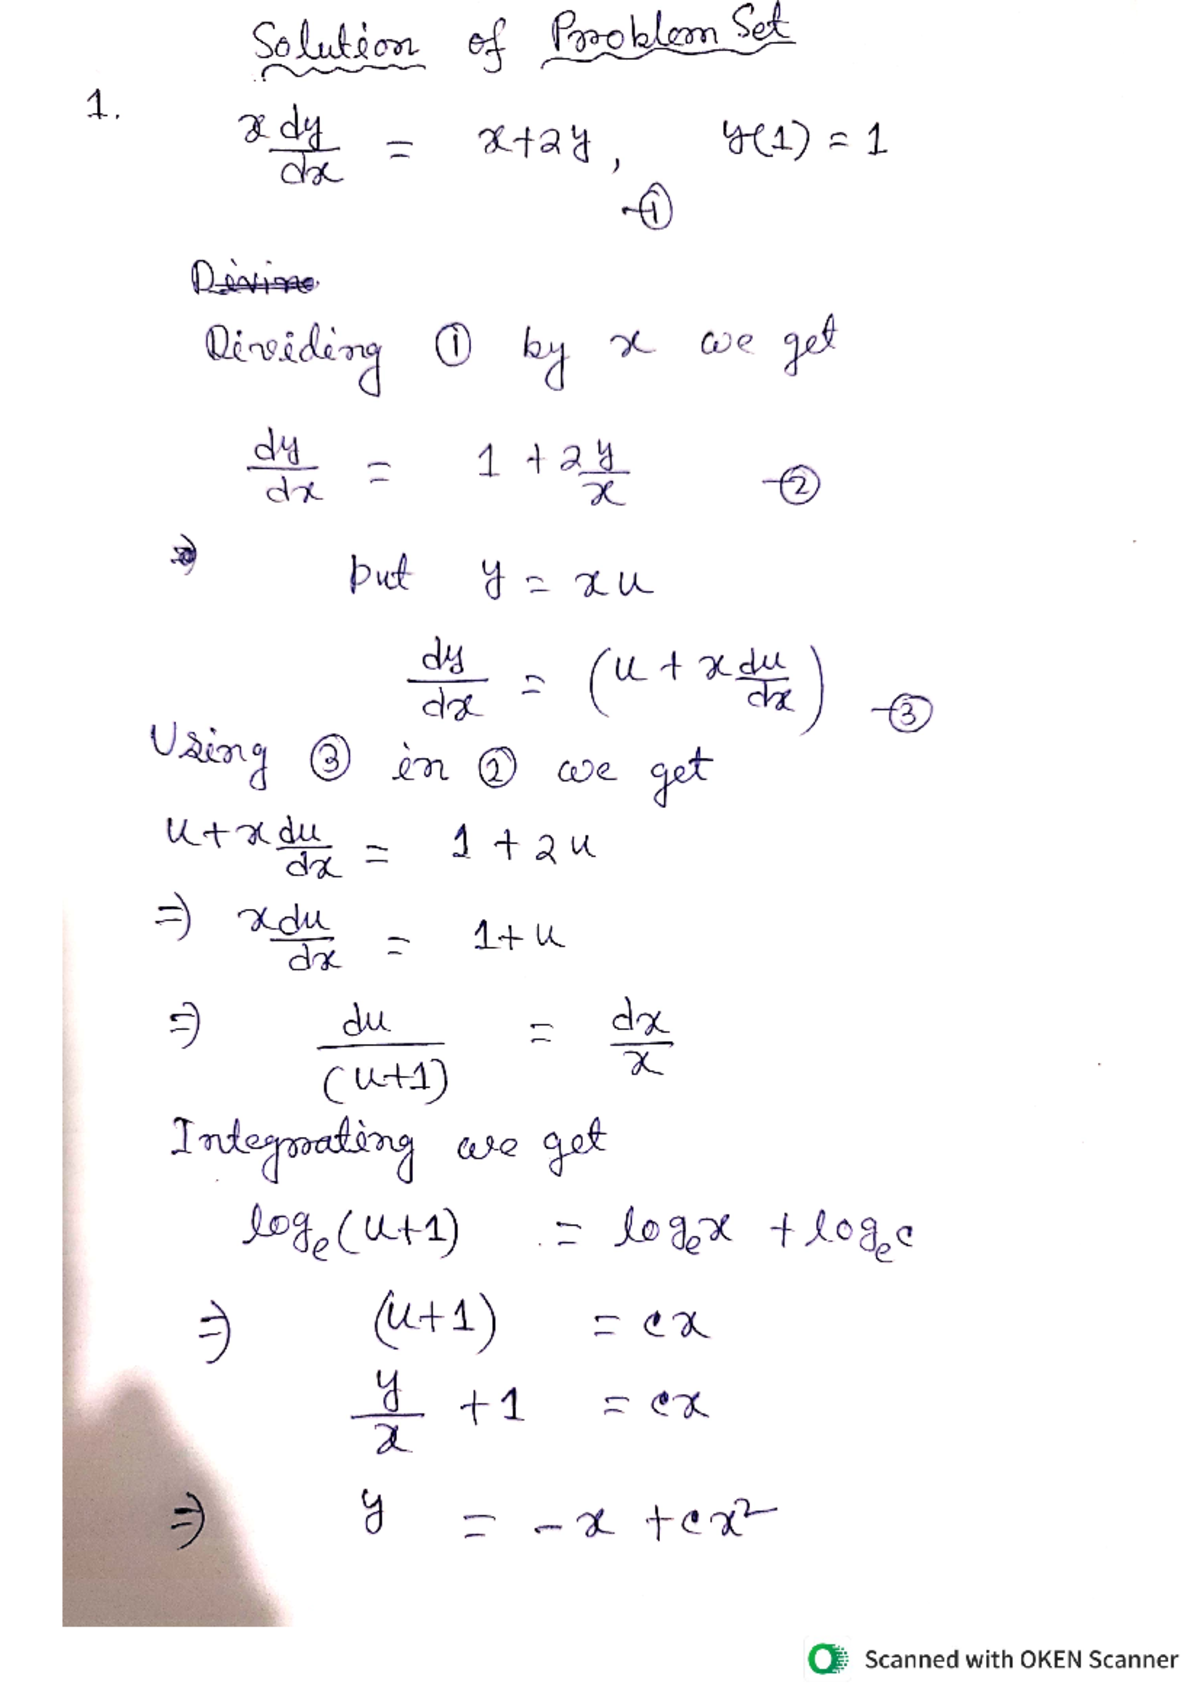 Solution of Problem Set
1. x dy/dx = x+2y, y(1) = 1
-①
Dividing ① by x we get
dy/dx = 1 + 2 y/x -②
put y = xu
dy/dx = (u + x du/dx) -③
Using ③ in ② we get
u + x du/dx = 1 + 2u
⇒ x du/dx = 1+u
⇒ du/(u+1) = dx/x
Integrating we get
logₑ(u+1) = logₑx + logₑc
⇒ (u+1) = cx
y/x + 1 = cx
⇒ y = -x + cx²
Scanned with OKEN Scanner